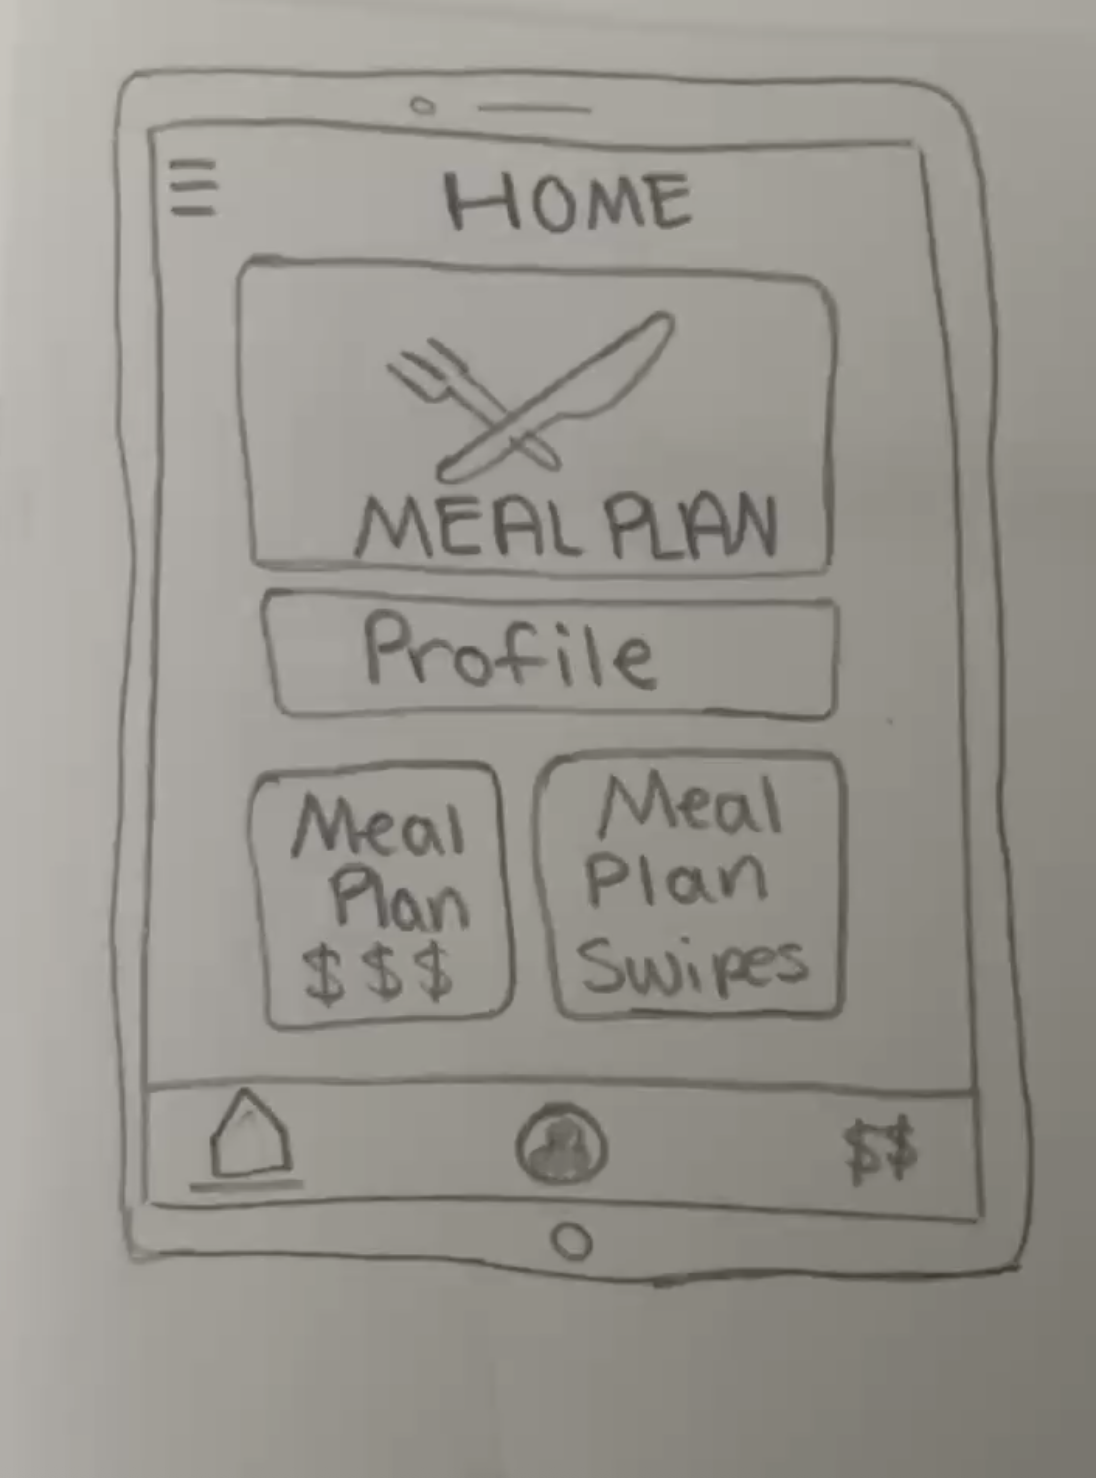 HOME
MEAL PLAN
Profile
Meal
Plan
$$$
Meal
Plan
Swipes
$$